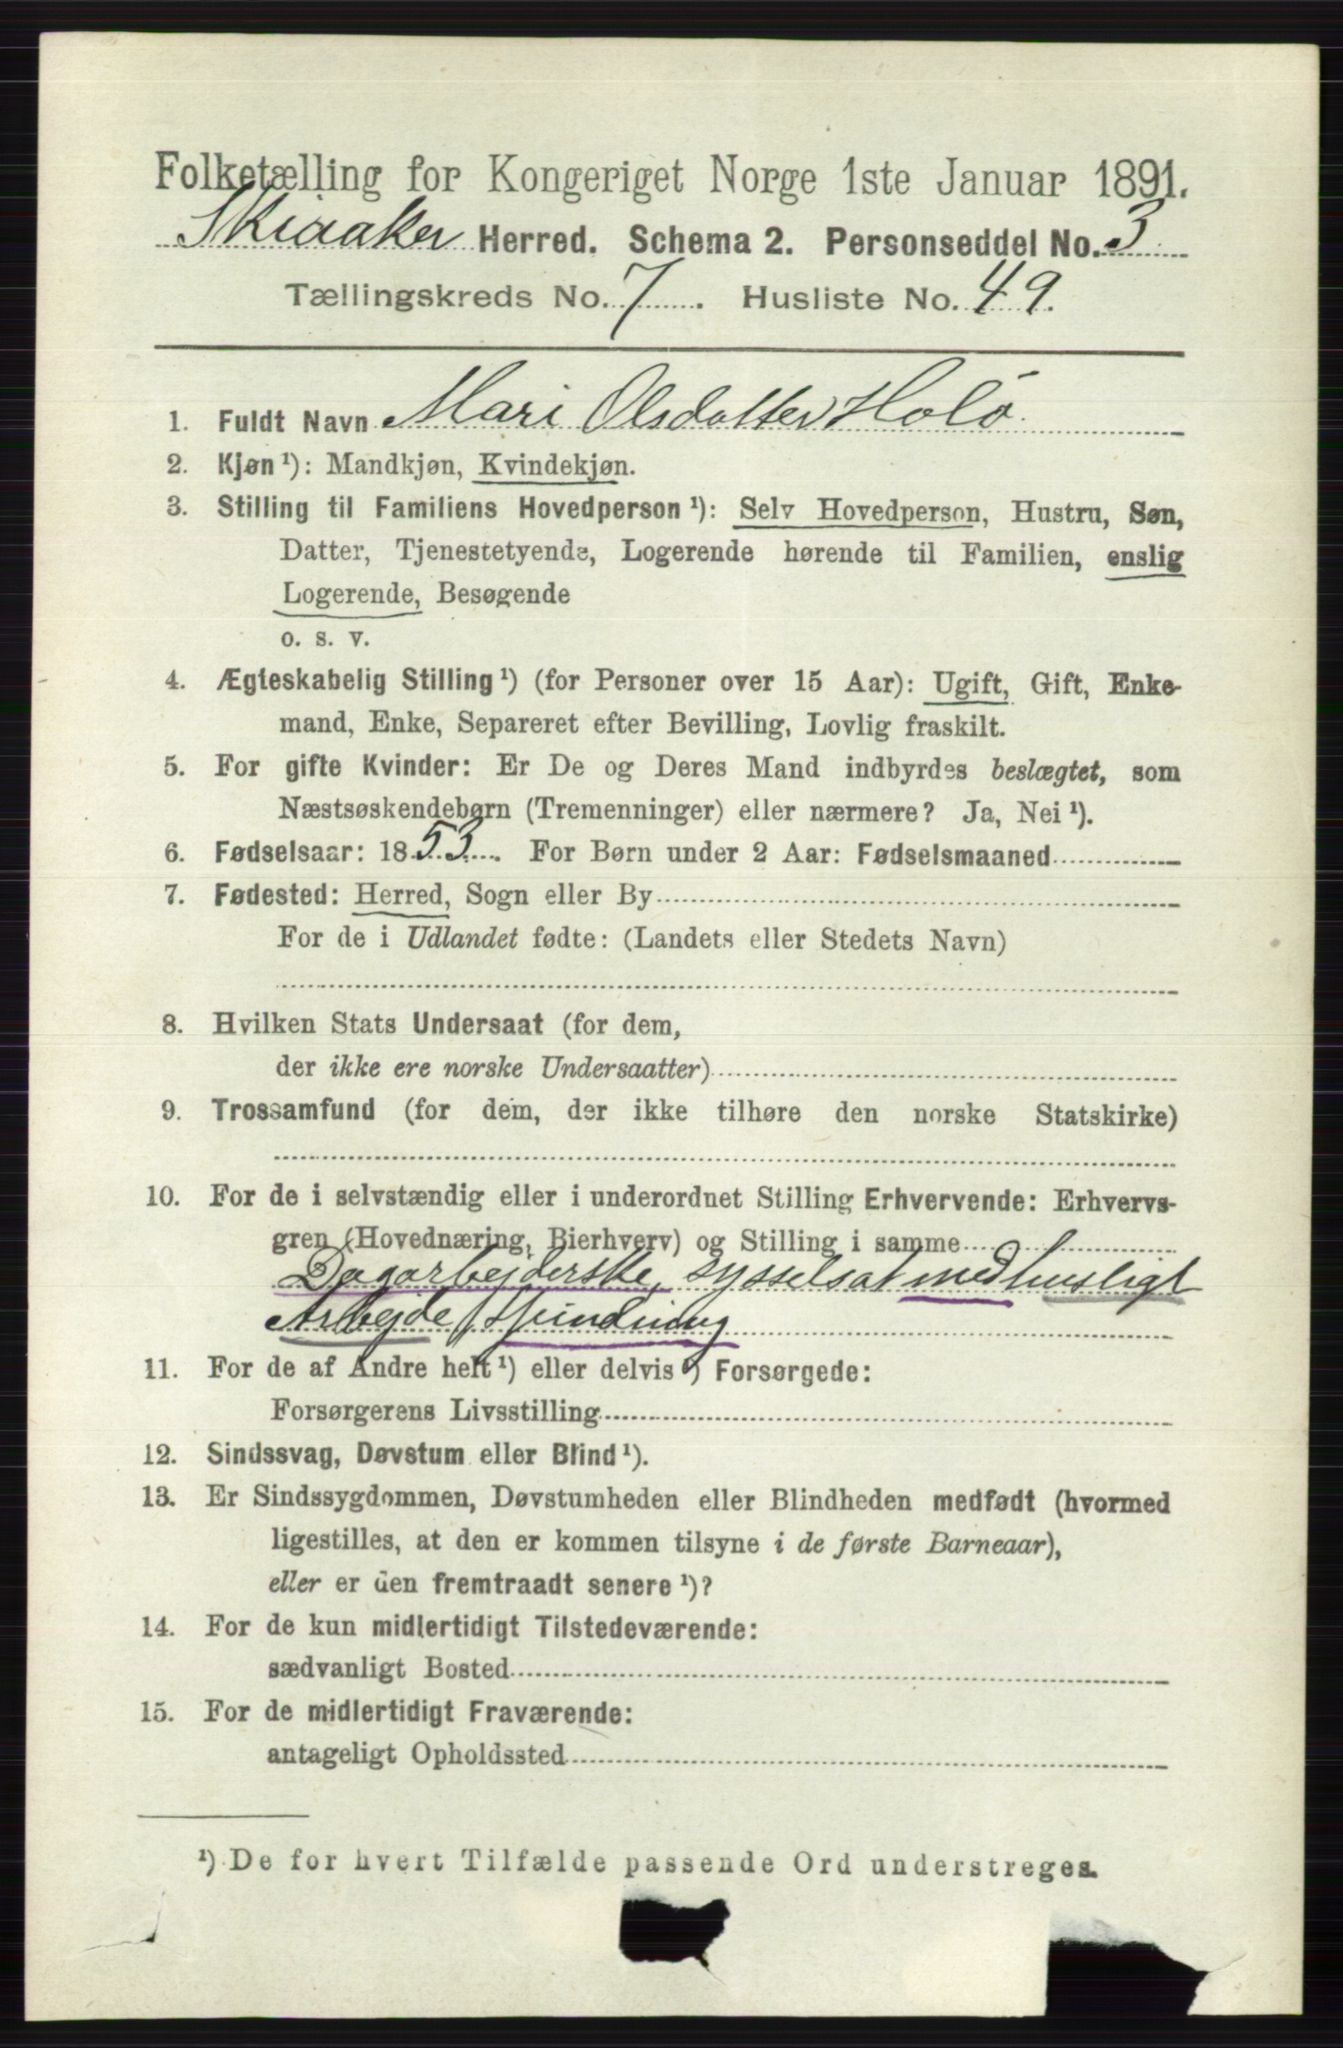 Folketælling for Kongeriget Norge 1ste Januar 1891.
Skiaaker Herred. Schema 2. Personseddel No. 3
Tællingskreds No. 7. Husliste No. 49.
1. Fuldt Navn Mari Olsdatter Holø
2. Kjøn ¹): Mandkjøn, Kvindekjøn.
3. Stilling til Familiens Hovedperson ¹): Selv Hovedperson, Hustru, Søn,
Datter, Tjenestetyende, Logerende hørende til Familien, enslig
Logerende, Besøgende
o. s. v.
4. Ægteskabelig Stilling ¹) (for Personer over 15 Aar): Ugift, Gift, Enke-
mand, Enke, Separeret efter Bevilling, Lovlig fraskilt.
5. For gifte Kvinder: Er De og Deres Mand indbyrdes beslægtet, som
Næstsøskendebørn (Tremenninger) eller nærmere? Ja, Nei ¹).
6. Fødselsaar: 1853. For Børn under 2 Aar: Fødselsmaaned
7. Fødested: Herred, Sogn eller By
For de i Udlandet fødte: (Landets eller Stedets Navn)
8. Hvilken Stats Undersaat (for dem,
der ikke ere norske Undersaatter)
9. Trossamfund (for dem, der ikke tilhøre den norske Statskirke)
10. For de i selvstændig eller i underordnet Stilling Erhvervende: Erhvervs-
gren (Hovednæring, Bierhverv) og Stilling i samme
Dagarbejderske, sysselsat med husligt
Arbejde, Spinding
11. For de af Andre helt ¹) eller delvis ¹) Forsørgede:
Forsørgerens Livsstilling
12. Sindssvag, Døvstum eller Blind ¹).
13. Er Sindssygdommen, Døvstumheden eller Blindheden medfødt (hvormed
ligestilles, at den er kommen tilsyne i de første Barneaar),
eller er den fremtraadt senere ¹)?
14. For de kun midlertidigt Tilstedeværende:
sædvanligt Bosted
15. For de midlertidigt Fraværende:
antageligt Opholdssted
¹) De for hvert Tilfælde passende Ord understreges.